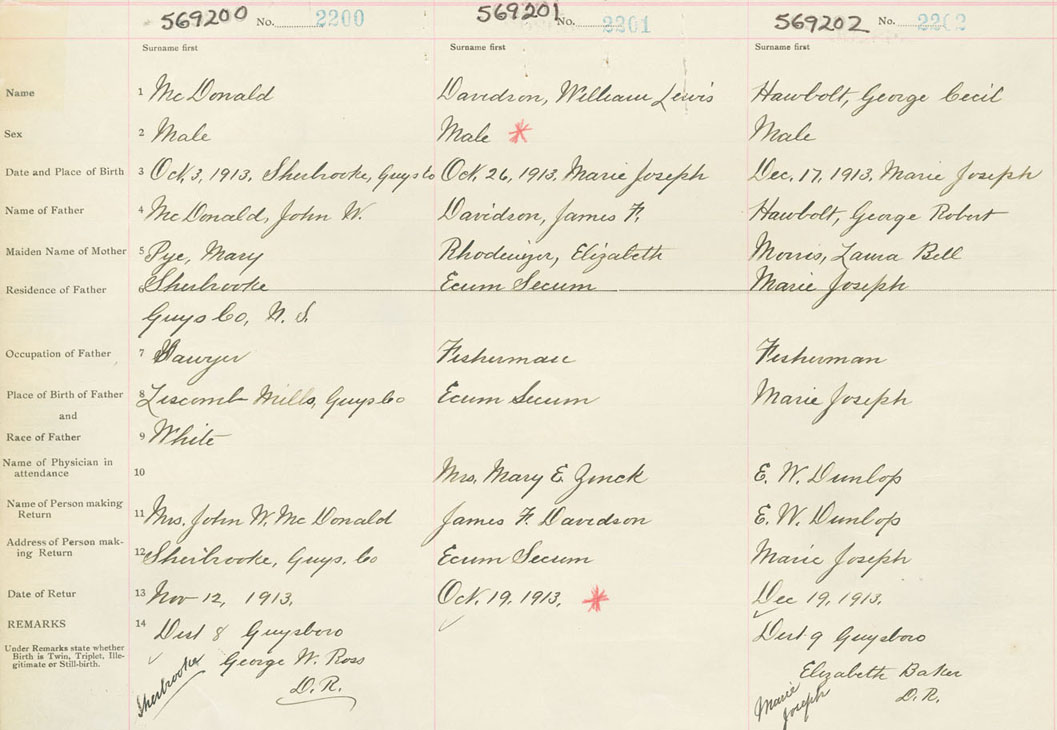 569200 No. 2200 569201 No. 2201 569202 No. 2202
Surname first Surname first Surname first
Name 1 McDonald Davidson, William Lewis Hawbolt, George Cecil
Sex 2 Male Male * Male
Date and Place of Birth 3 Oct. 3, 1913, Sherbrooke, Guys Co Oct. 26, 1913, Marie Joseph Dec. 17, 1913, Marie Joseph
Name of Father 4 McDonald, John W. Davidson, James F. Hawbolt, George Robert
Maiden Name of Mother 5 Pye, Mary Rhodenizer, Elizabeth Morris, Laura Bell
Residence of Father 6 Sherbrooke Ecum Secum Marie Joseph
Guys Co, N. S.
Occupation of Father 7 Sawyer Fisherman Fisherman
Place of Birth of Father 8 Liscomb Mills, Guys Co Ecum Secum Marie Joseph
and
Race of Father 9 White
Name of Physician in
attendance 10 Mrs. Mary E. Zinck E. W. Dunlop
Name of Person making
Return 11 Mrs. John W. McDonald James F. Davidson E. W. Dunlop
Address of Person mak-
ing Return 12 Sherbrooke, Guys. Co Ecum Secum Marie Joseph
Date of Retur 13 Nov 12, 1913. Oct. 19, 1913. * Dec 19, 1913.
REMARKS 14 Dist 8 Guysboro Dist. 9 Guysboro
Under Remarks state whether
Birth is Twin, Triplet, Ille-
gitimate or Still-birth.
George W. Ross Elizabeth Baker
D. R. D. R.
Sherbrooke Marie Joseph